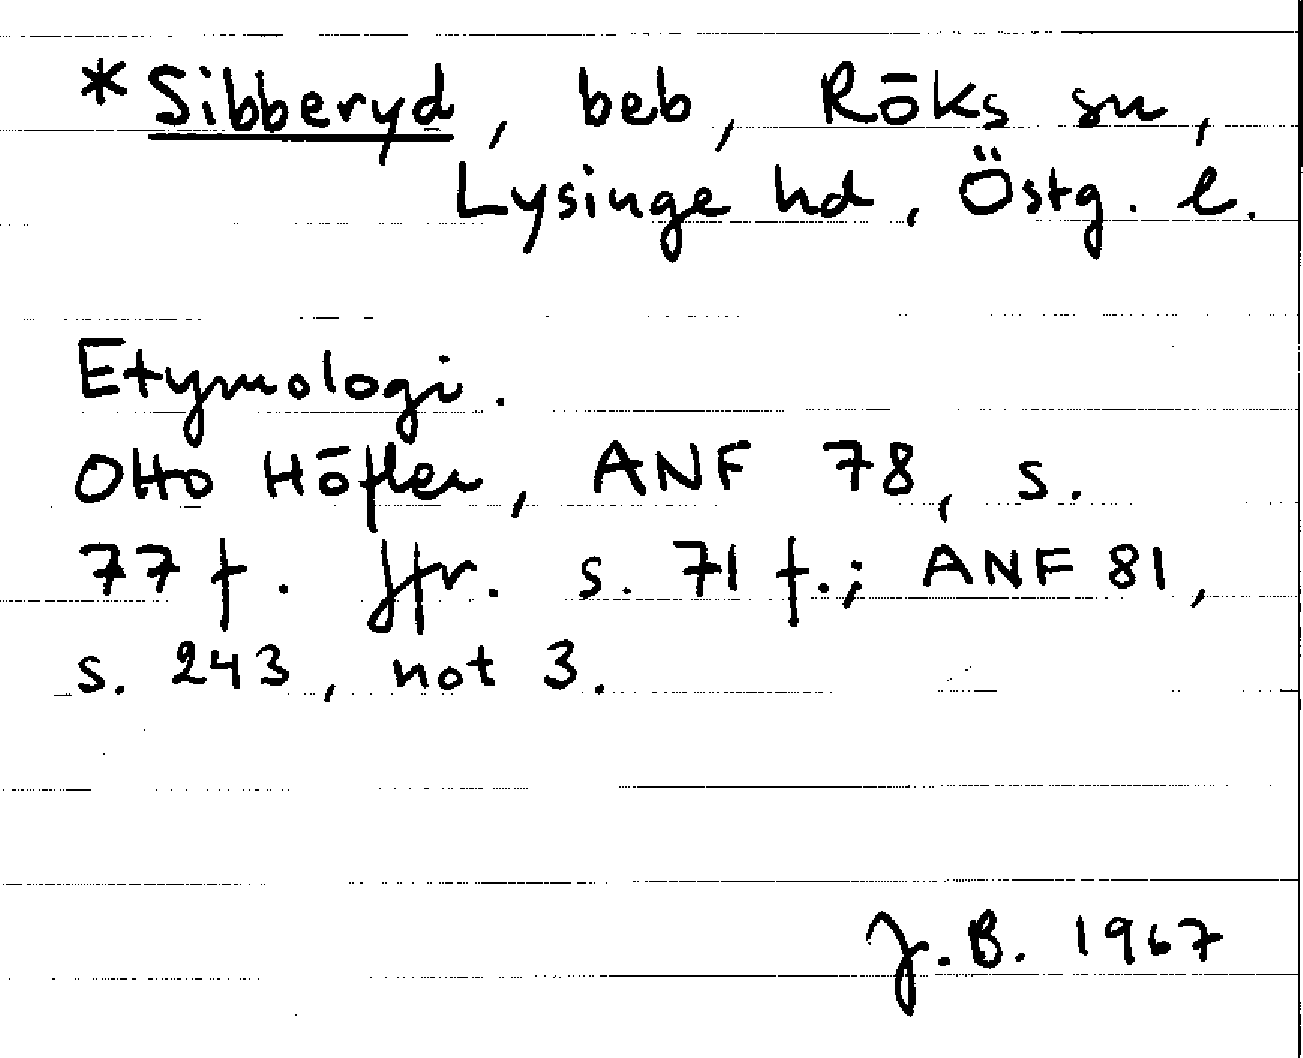 *Sibberyd, beb, Röks sn,
Lysinge hd, Östg. l.
Etymologi.
Otto Höfler, ANF 78, s.
77 f. Jfr. s. 71 f.; ANF 81,
s. 243, not 3.
J.B. 1967